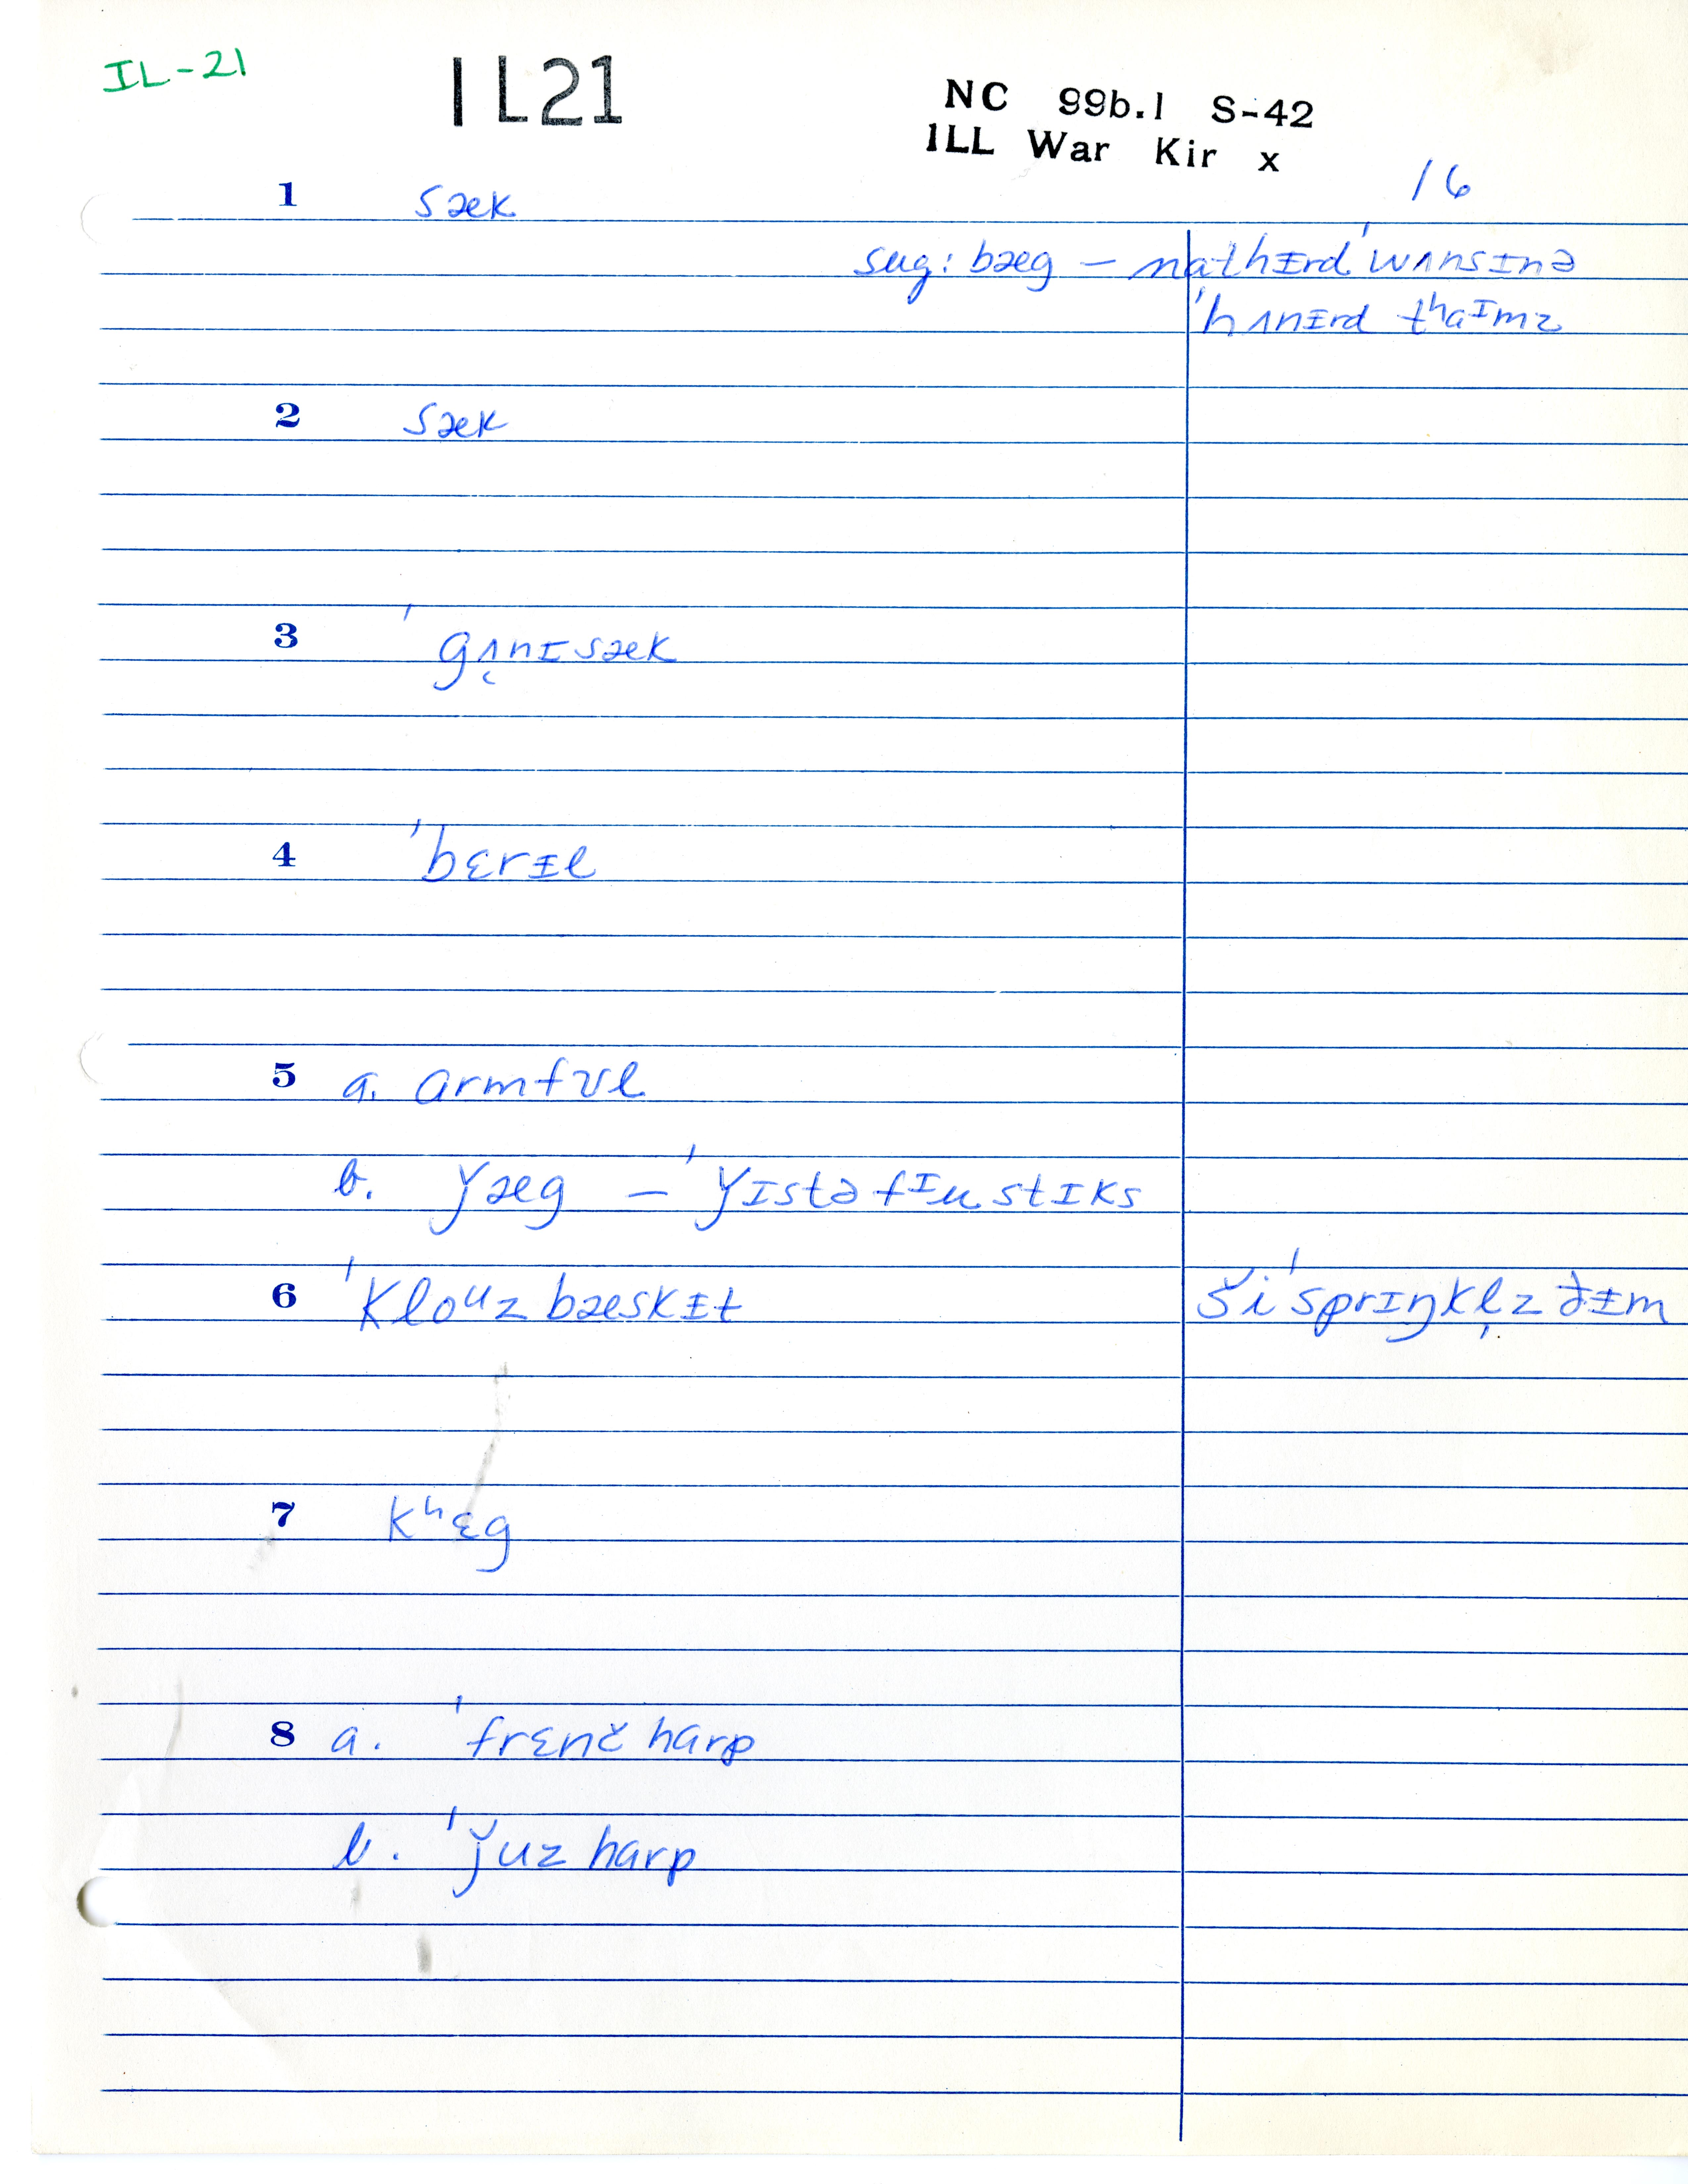 IL-21
IL21
NC 99b.1 S-42
ILL War Kir x
16
1 sæk
sug: bæg — nathɪrd ˈwʌnsɪnə
ˈhʌnɪrd tʰaᴵmz
2 sæk
3 ˈgʌ̨nɪsæk
4 ˈbɛrɪl
5 a. armfʊl
b. ǰæg — ˈǰɪstəfᴵustɪks
6 ˈkloᵘz bæskɪt ši ˈsprɪŋkl̩z ðɪm
7 kʰɛg
8 a. ˈfrɛnč harp
b. ˈǰuz harp